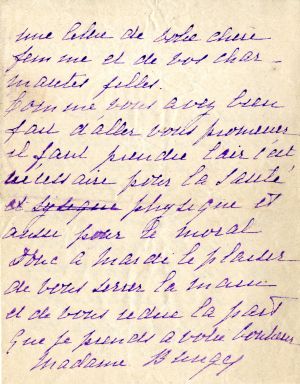 une lettre de votre chere
femme et de vos char-
mantes filles.
Comme vous avez bien
fait d'aller vous promener
il faut prendre l'air c'est
necessaire pour la santé
et physique et
aussi pour le moral
Donc a mardi le plaisir
de vous serrer la main
et de vous redire la part
que je prends a votre bonheur
Madame